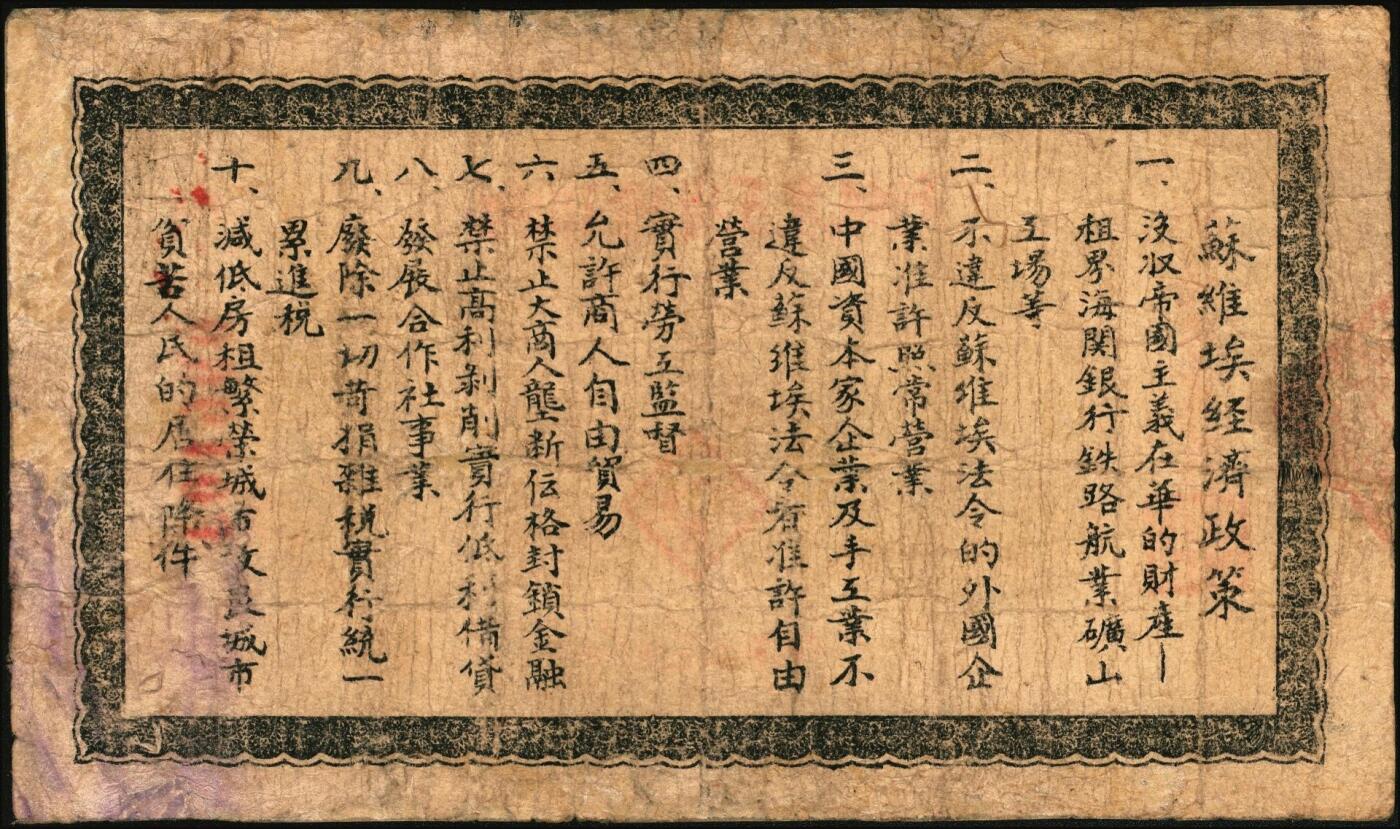 蘇維埃経濟政策
一、没収帝國主義在華的財産—
租界海関銀行鉄路航業礦山
工場等
二、不違反蘇維埃法令的外國企
業准許照常營業
三、中國資本家企業及手工業不
違反蘇維埃法令者准許自由
營業
四、實行勞工監督
五、允許商人自由貿易
六、禁止大商人壟断価格封鎖金融
七、禁止高利剝削實行低利借貸
八、發展合作社事業
九、廢除一切苛捐雜税實行統一
累進税
十、減低房租繁榮城市改良城市
貧苦人民的居住條件